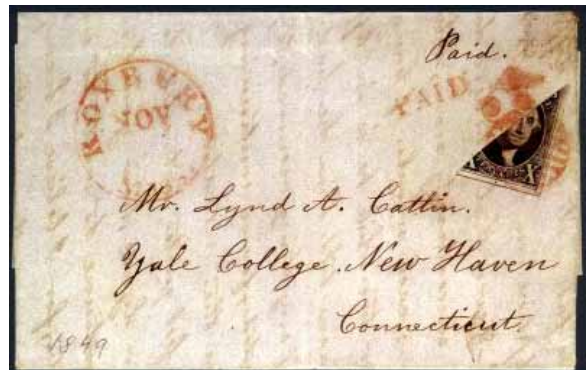 Paid.
PAID
ROXBURY
NOV
X X
Mr. Lynd A. Cattin.
Yale College. New Haven
Connecticut.
1849